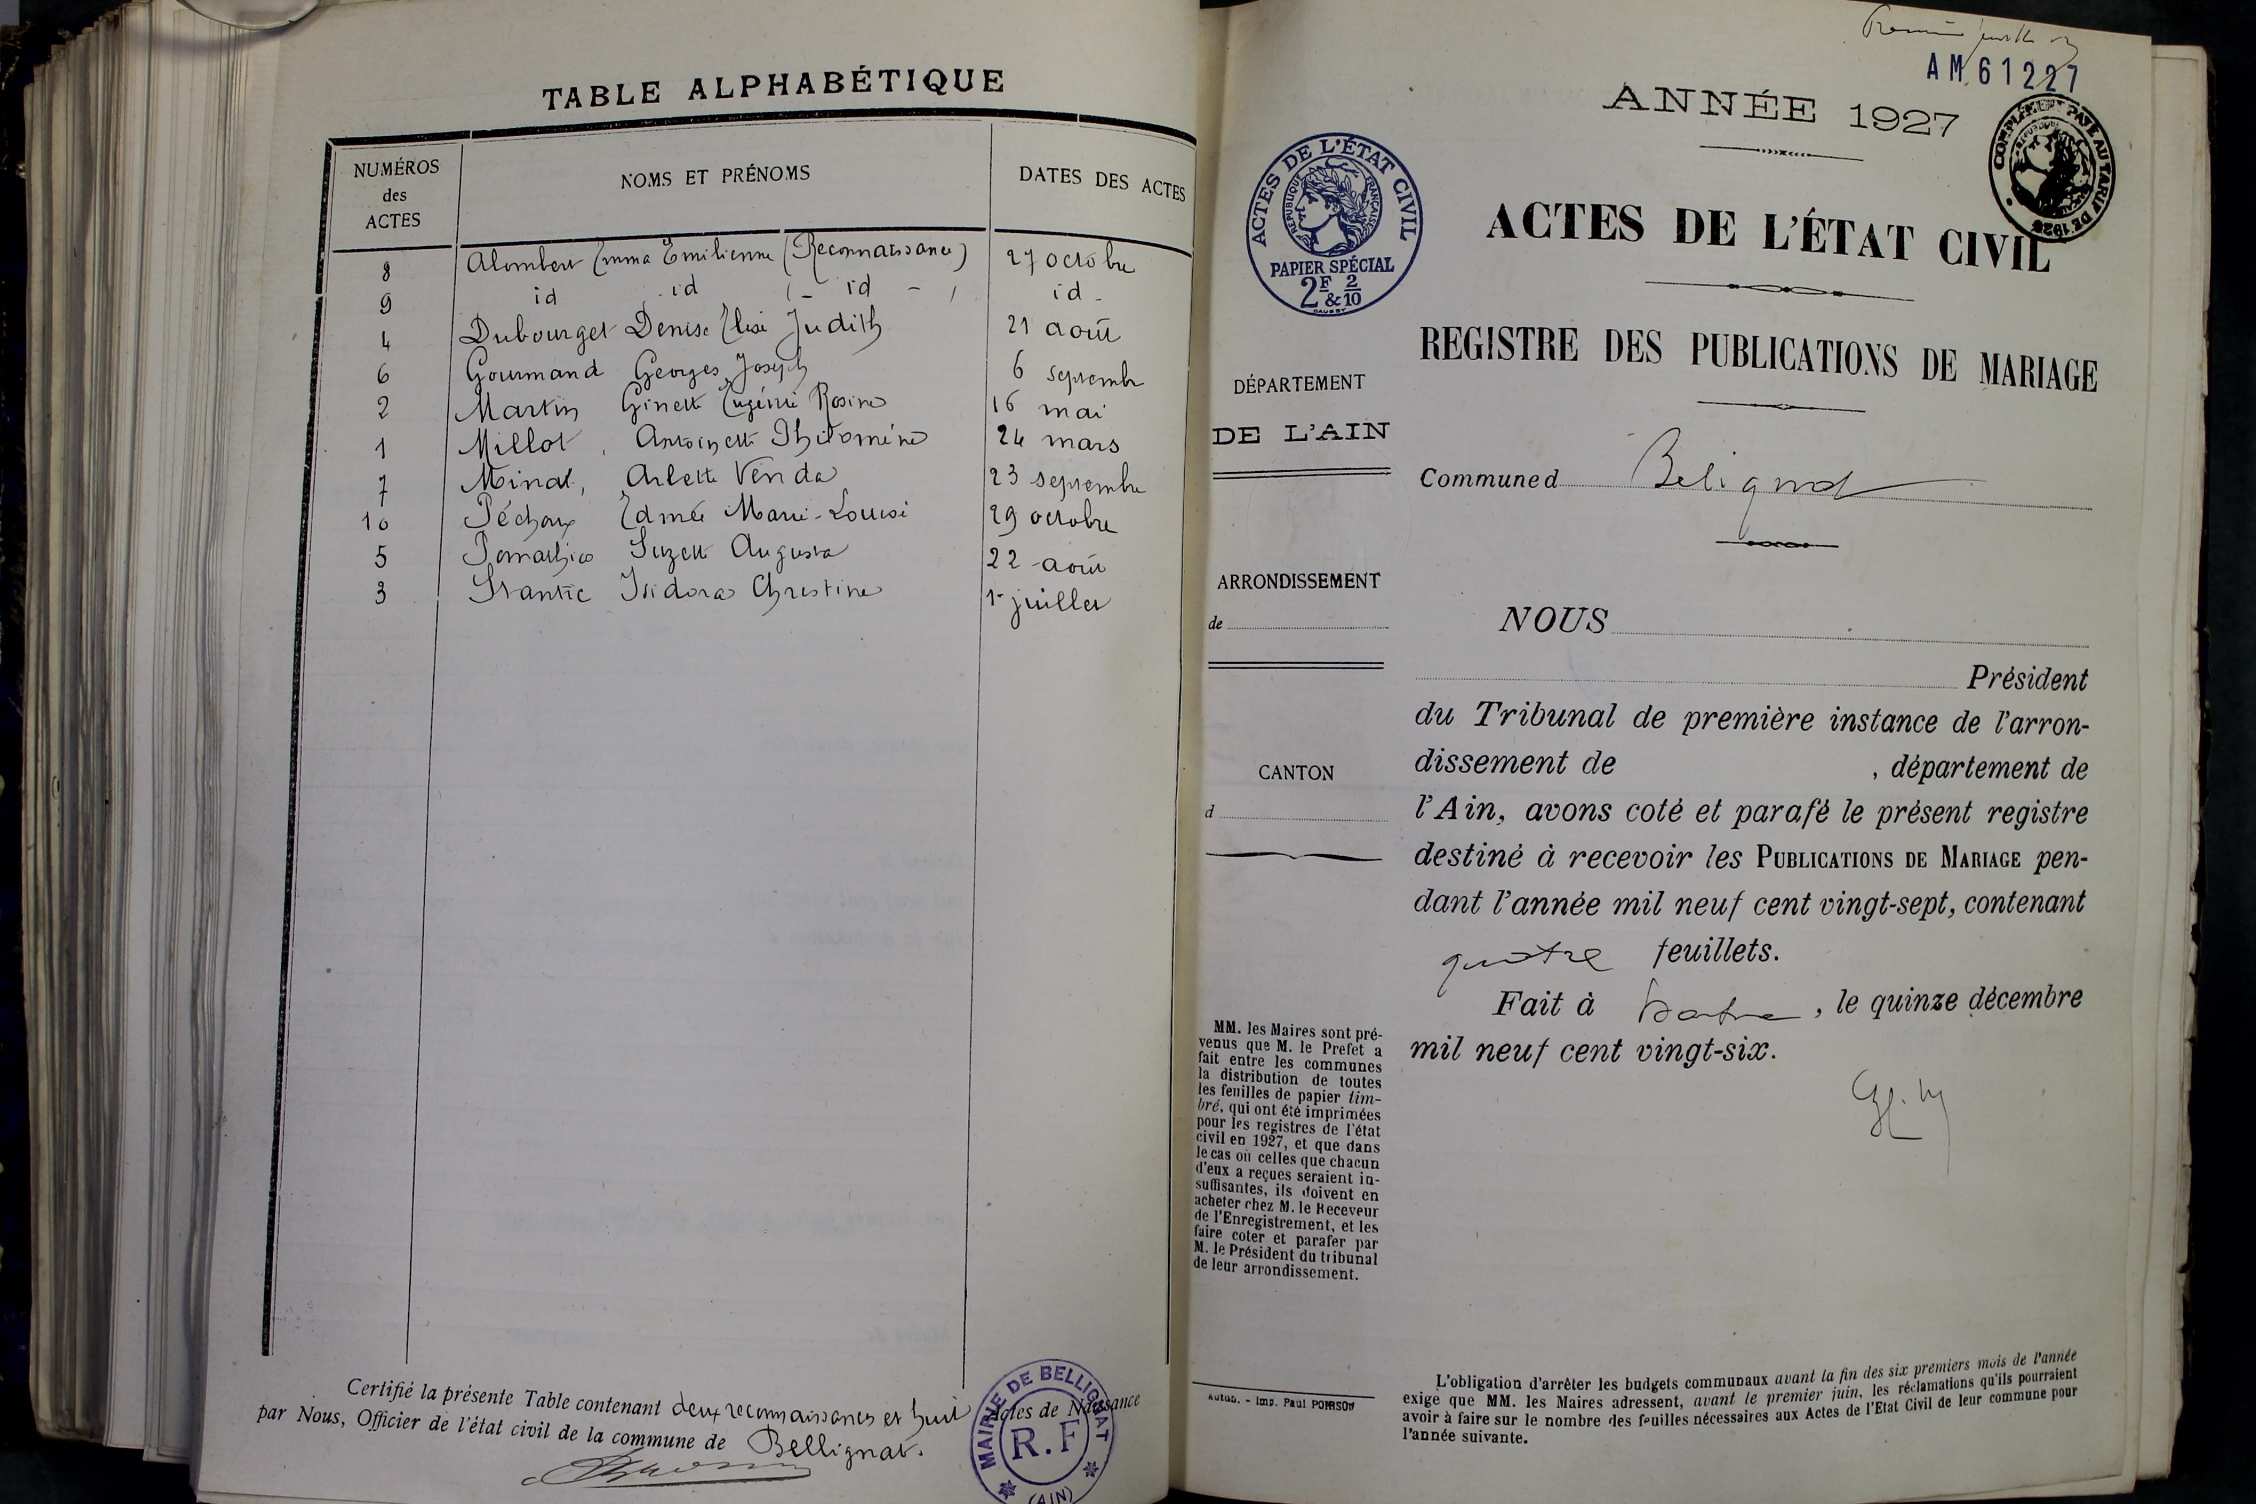 TABLE ALPHABÉTIQUE
NUMÉROS des ACTES
NOMS ET PRÉNOMS
DATES DES ACTES
8 Alombert Emma Emilienne (Reconnaissance) 27 octobre
9 id id (- id -) id -
4 Dubourget Denise Elise Judith 21 août
6 Gourmand Georges Joseph 6 septembre
2 Martin Ginette Eugénie Rosine 16 mai
1 Millot, Antoinette Philomène 24 mars
7 Minat, Arlette Venda 23 septembre
10 Péchoux Edmée Marie-Louise 29 octobre
5 Suzette Augusta 22 août
3 Isidora Christine 1er juillet
Certifié la présente Table contenant deux reconnaissances et huit Actes de Naissance
par Nous, Officier de l'état civil de la commune de Bellignat.
MAIRIE DE BELLIGNAT
R.F
(AIN)
AM 61227
ANNÉE 1927
COMPLÉMENT PAYÉ AU TARIF DE 1926
ACTES DE L'ÉTAT CIVIL
RÉPUBLIQUE FRANÇAISE
PAPIER SPÉCIAL
2F & 2/10
ACTES DE L'ÉTAT CIVIL
REGISTRE DES PUBLICATIONS DE MARIAGE
DÉPARTEMENT
DE L'AIN
Commune d Belignat
ARRONDISSEMENT
de
CANTON
d
NOUS
Président
du Tribunal de première instance de l'arron-
dissement de , département de
l'Ain, avons coté et parafé le présent registre
destiné à recevoir les PUBLICATIONS DE MARIAGE pen-
dant l'année mil neuf cent vingt-sept, contenant
quatre feuillets.
Fait à , le quinze décembre
mil neuf cent vingt-six.
MM. les Maires sont pré-
venus que M. le Prefet a
fait entre les communes
la distribution de toutes
les feuilles de papier tim-
bré, qui ont été imprimées
pour les registres de l'état
civil en 1927, et que dans
le cas où celles que chacun
d'eux a reçues seraient in-
suffisantes, ils doivent en
acheter chez M. le Receveur
de l'Enregistrement, et les
faire coter et parafer par
M. le Président du tribunal
de leur arrondissement.
Imp. Paul
L'obligation d'arrêter les budgets communaux avant la fin des six premiers mois de l'année
exige que MM. les Maires adressent, avant le premier juin, les réclamations qu'ils pourraient
avoir à faire sur le nombre des feuilles nécessaires aux Actes de l'Etat Civil de leur commune pour
l'année suivante.